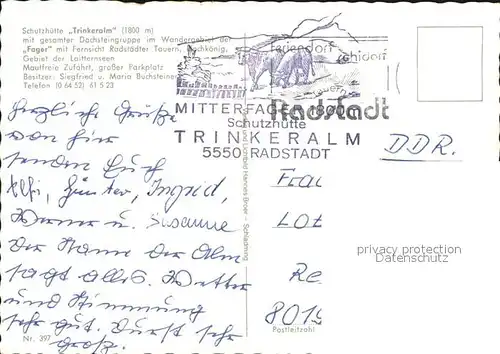 Schutzhütte „Trinkeralm" (1800 m)
mit gesamter Dachsteingruppe im Wandergebiet der
„Fager" mit Fernsicht Radstädter Tauern, Hochkönig,
Gebiet der Laitternseen
Mautfreie Zufahrt, großer Parkplatz
Besitzer: Siegfried u. Maria Buchsteiner
Telefon (0 64 52) 61 5 23
Feriendorf
Schidorf
Tauern
Radstadt
MITTERFAGER 1800
Schutzhütte
TRINKERALM
5550 RADSTADT
DDR.
Herzliche Grüße
von hier
senden Euch
Elfi, Günter, Ingrid,
Werner u. Susanne
Der Name der Alm
sagt alles. Wetter
und Stimmung
sehr gut. Durst sehr
groß.
Frau
Lot
Re
801
Postleitzahl
Nr. 397
Hannes Broer - Schladming
privacy protection
Datenschutz